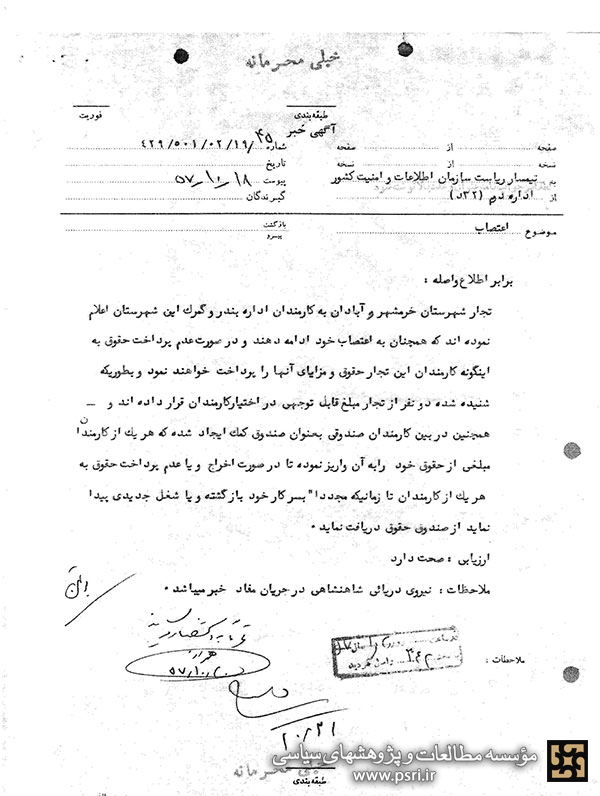 خیلی محرمانه
طبقه‌بندی
فوریت
آگهی خبر
صفحه از صفحه شماره ۴۲۹/۵۰۱/۰۲/۱۹/۴۵
نسخه از نسخه تاریخ
به تیمسار ریاست سازمان اطلاعات و امنیت کشور پیوست ۵۷/۱۰/۱۸
از اداره دوم (۳۲د) گیرندگان
موضوع اعتصاب بازگشت
پیرو
برابر اطلاع واصله :
تجار شهرستان خرمشهر و آبادان به کارمندان اداره بندر و گمرک این شهرستان اعلام
نموده اند که همچنان به اعتصاب خود ادامه دهند و در صورت عدم پرداخت حقوق به
اینگونه کارمندان این تجار حقوق و مزایای آنها را پرداخت خواهند نمود و بطوریکه
شنیده شده دو نفر از تجار مبلغ قابل توجهی در اختیار کارمندان قرار داده اند و
همچنین در بین کارمندان صندوقی بعنوان صندوق کمک ایجاد شده که هر یک از کارمندان
مبلغی از حقوق خود را به آن واریز نموده تا در صورت اخراج و یا عدم پرداخت حقوق به
هر یک از کارمندان تا زمانیکه مجددا" بسر کار خود بازگشته و یا شغل جدیدی پیدا
نماید از صندوق حقوق دریافت نماید .
ارزیابی : صحت دارد
ملاحظات : نیروی دریائی شاهنشاهی در جریان مفاد خبر میباشد .
ملاحظات :
۵۷/۱۰/۲۰
۱۰/۲۱
مؤسسه مطالعات و پژوهشهای سیاسی
www.psri.ir
خیلی محرمانه
طبقه‌بندی